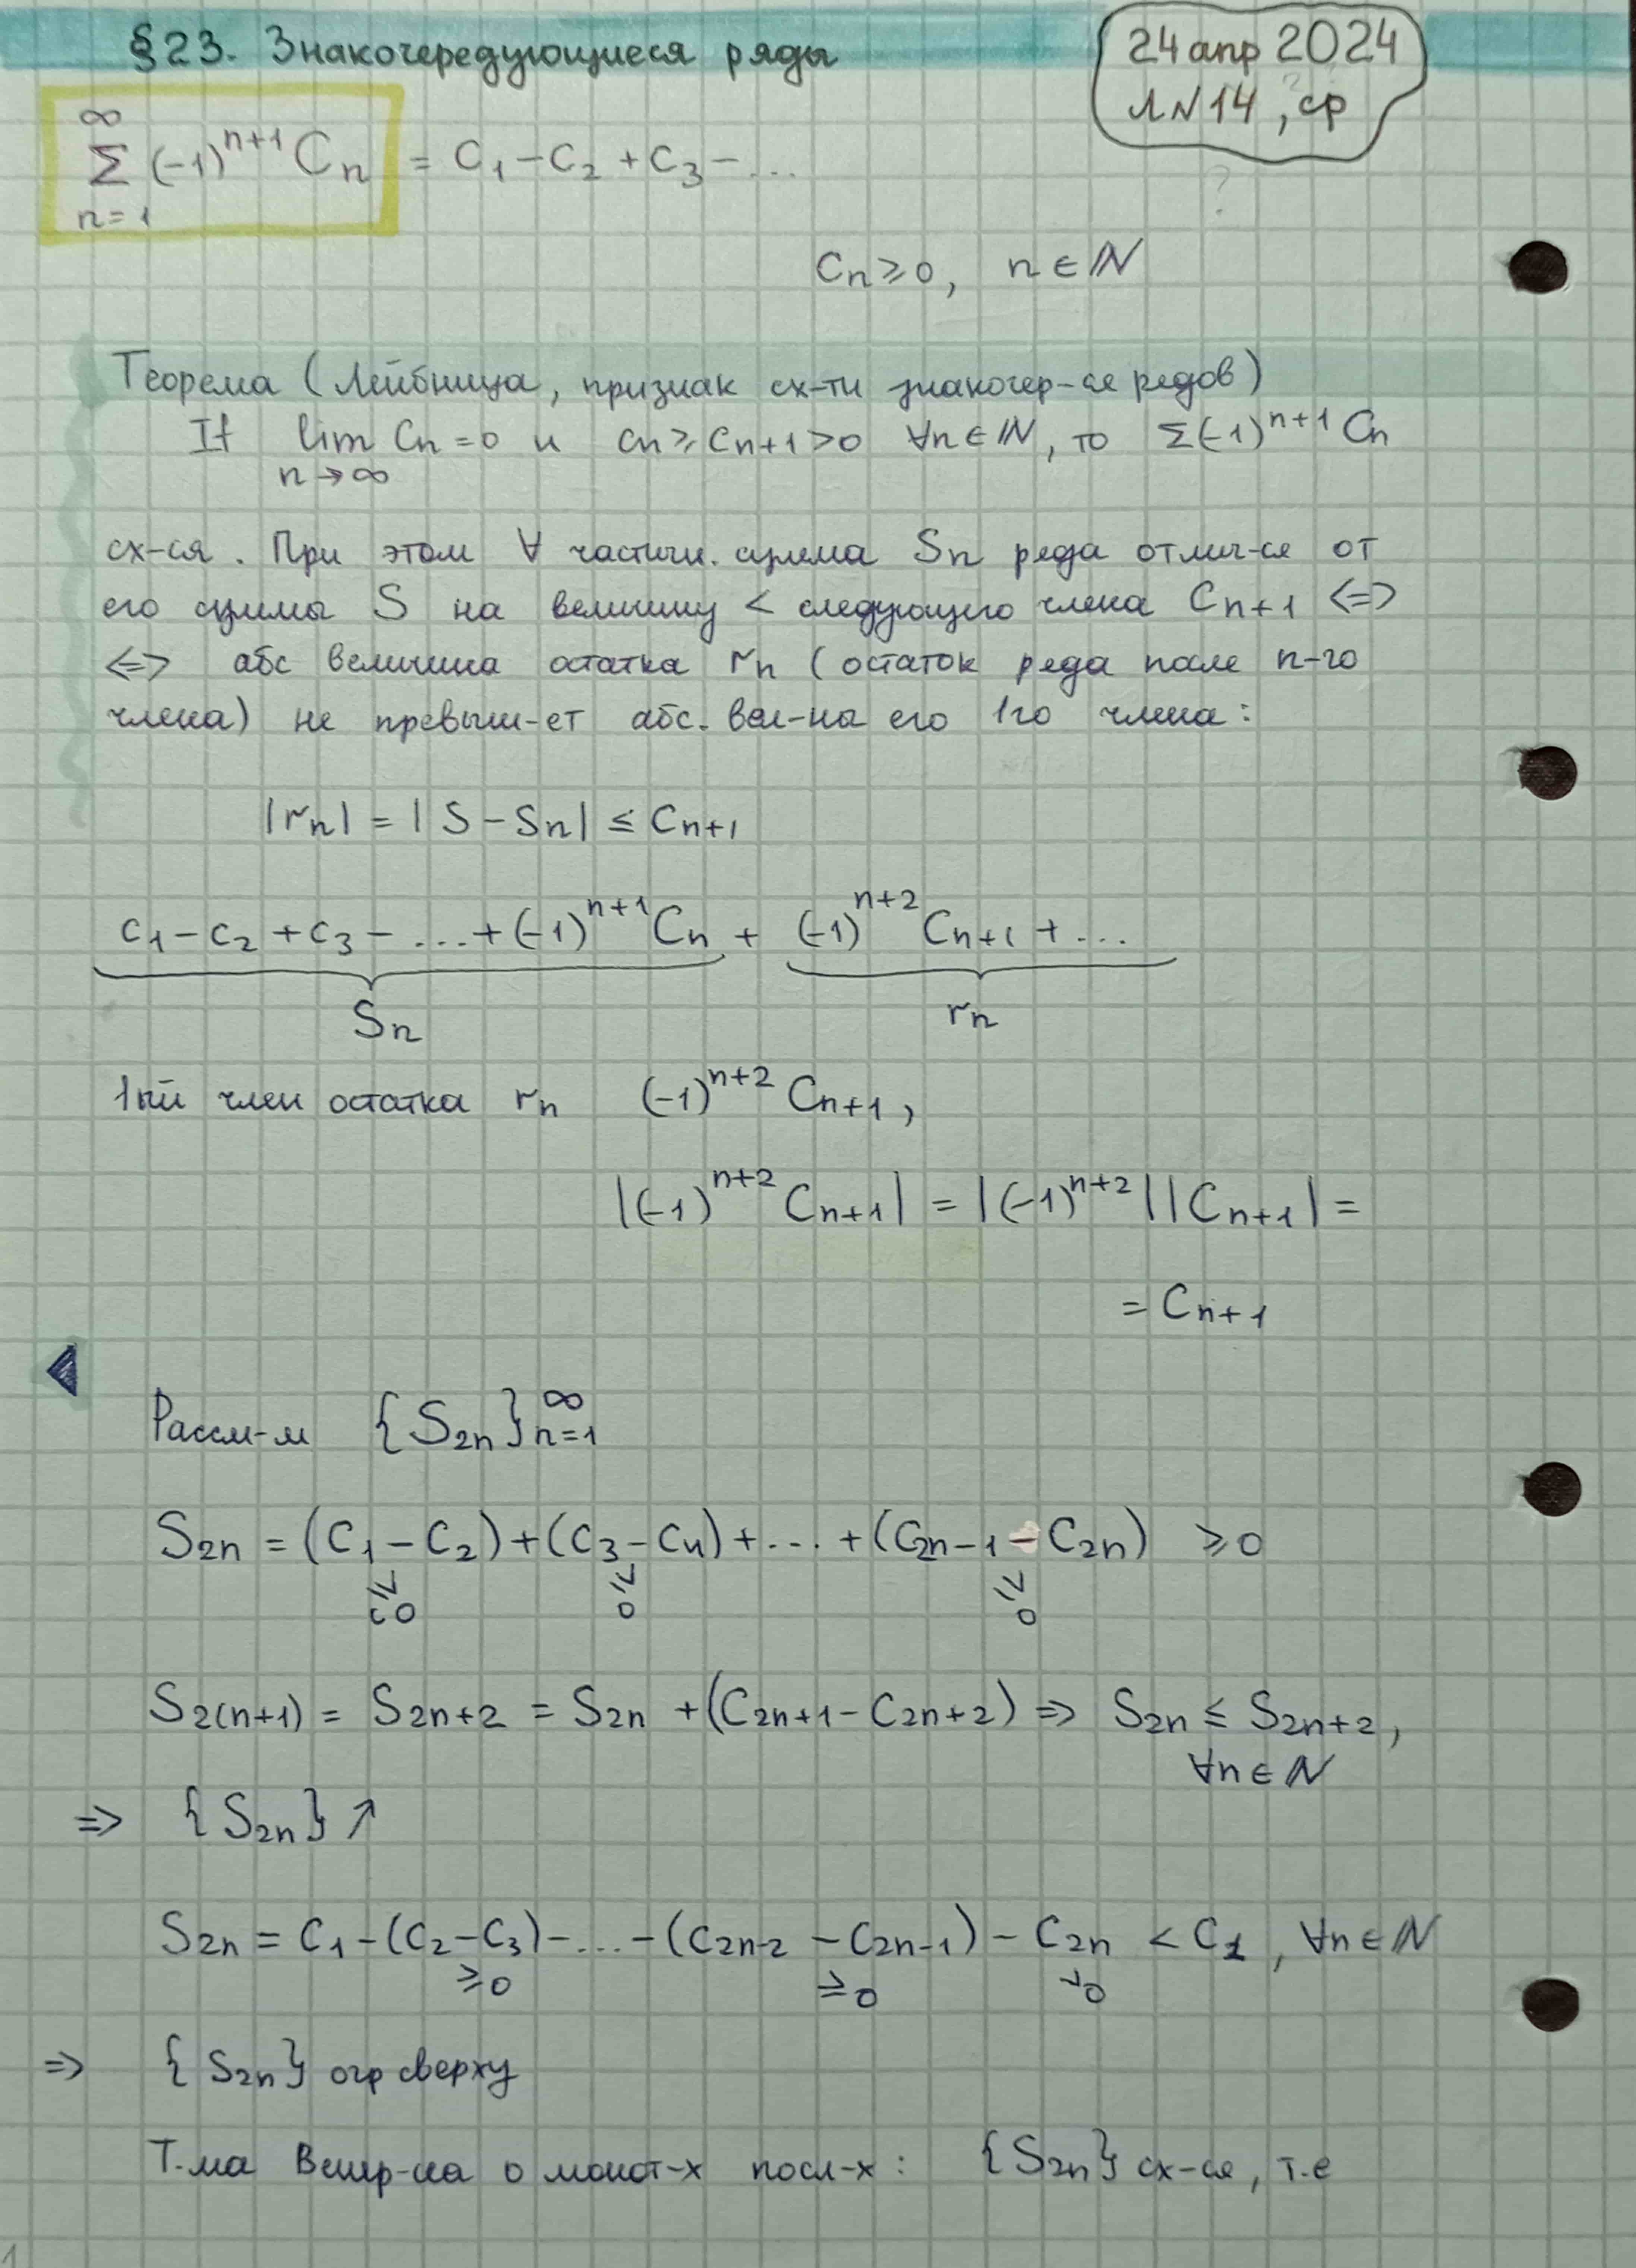 §23. Знакочередующиеся ряды
24 апр 2024
Л N14, ср
∞
Σ (-1)^{n+1} C_n = C_1 - C_2 + C_3 - ...
n=1
?
C_n ≥ 0, n ∈ ℕ
Теорема (Лейбница, признак сх-ти знакочер-ся рядов)
If lim C_n = 0 и C_n ≥ C_{n+1} > 0 ∀n ∈ ℕ, то Σ(-1)^{n+1} C_n
n→∞
сх-ся. При этом ∀ частичн. сумма S_n ряда отлич-ся от
его суммы S на величину < следующего члена C_{n+1} <=>
<=> абс величина остатка r_n (остаток ряда после n-го
члена) не превыш-ет абс. вел-на его 1го члена:
|r_n| = |S - S_n| ≤ C_{n+1}
C_1 - C_2 + C_3 - ... + (-1)^{n+1} C_n + (-1)^{n+2} C_{n+1} + ...
S_n r_n
1ый член остатка r_n (-1)^{n+2} C_{n+1},
|(-1)^{n+2} C_{n+1}| = |(-1)^{n+2}||C_{n+1}| =
= C_{n+1}
Рассм-м {S_{2n}}_{n=1}^∞
S_{2n} = (C_1 - C_2) + (C_3 - C_4) + ... + (C_{2n-1} - C_{2n}) ≥ 0
≥0 ≥0 ≥0
S_{2(n+1)} = S_{2n+2} = S_{2n} + (C_{2n+1} - C_{2n+2}) => S_{2n} ≤ S_{2n+2},
∀n ∈ ℕ
=> {S_{2n}} ↗
S_{2n} = C_1 - (C_2 - C_3) - ... - (C_{2n-2} - C_{2n-1}) - C_{2n} < C_1, ∀n ∈ ℕ
≥0 ≥0 >0
=> {S_{2n}} огр сверху
Т.ма Вейер-са о монот-х посл-х: {S_{2n}} сх-ся, т.е
1